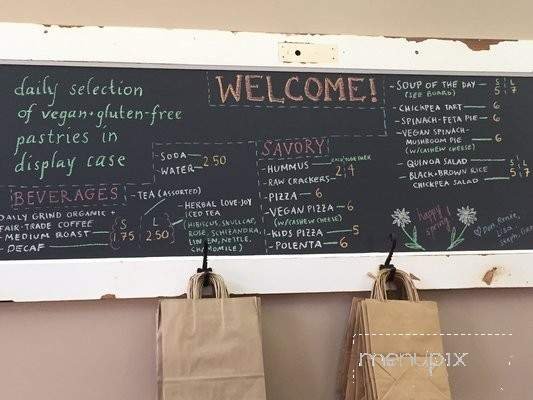 WELCOME!
daily selection
of vegan+gluten-free
pastries in
display case
BEVERAGES
DAILY GRIND ORGANIC +
FAIR-TRADE COFFEE
- MEDIUM ROAST
- DECAF
S L
1.75 2.50
- SODA
WATER 2.50
- TEA (ASSORTED)
- HERBAL LOVE-JOY
ICED TEA
(HIBISCUS, SKULLCAP,
ROSE, SCHIZANDRA,
LINDEN, NETTLE,
CHAMOMILE)
SAVORY
- HUMMUS
- RAW CRACKERS 2 4
- PIZZA 6
- VEGAN PIZZA 6
(W/CASHEW CHEESE)
- KIDS PIZZA 5
- POLENTA 6
- SOUP OF THE DAY S L
(SEE BOARD) 5 7
- CHICKPEA TART 6
- SPINACH-FETA PIE 6
- VEGAN SPINACH-
MUSHROOM PIE 6
(W/CASHEW CHEESE)
- QUINOA SALAD S L
- BLACK+BROWN RICE 5 7
CHICKPEA SALAD
happy
spring!
Renee,
Lisa
Steph,
menupix